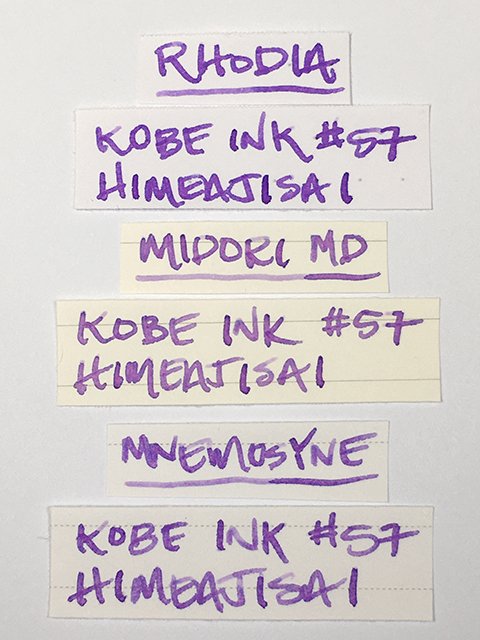 RHODIA
KOBE INK #57
HIMEAJISAI
MIDORI MD
KOBE INK #57
HIMEAJISAI
MNEMOSYNE
KOBE INK #57
HIMEAJISAI